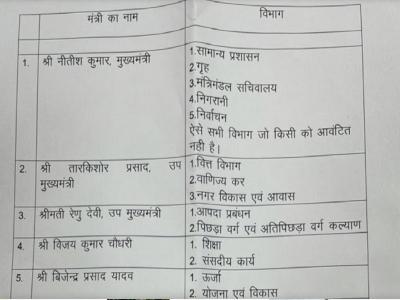 मंत्री का नाम
विभाग
1. श्री नीतीश कुमार, मुख्यमंत्री
1.सामान्य प्रशासन
2.गृह
3.मंत्रिमंडल सचिवालय
4.निगरानी
5.निर्वाचन
ऐसे सभी विभाग जो किसी को आवंटित
नही है।
2. श्री तारकिशोर प्रसाद, उप
मुख्यमंत्री
1.वित्त विभाग
2.वाणिज्य कर
3.नगर विकास एवं आवास
3. श्रीमती रेणु देवी, उप मुख्यमंत्री
1.आपदा प्रबंधन
2.पिछड़ा वर्ग एवं अतिपिछड़ा वर्ग कल्याण
4. श्री विजय कुमार चौधरी
1. शिक्षा
2. संसदीय कार्य
5. श्री बिजेन्द्र प्रसाद यादव
1. ऊर्जा
2. योजना एवं विकास